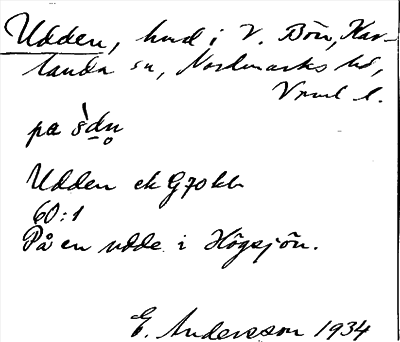 Udden, hmd i V. Bön, Kar-
landa sn, Nordmarks hd,
Vrml l.
pa
Udden ek G70kb
60:1
På en udde i Högsjön.
E. Andersson 1934